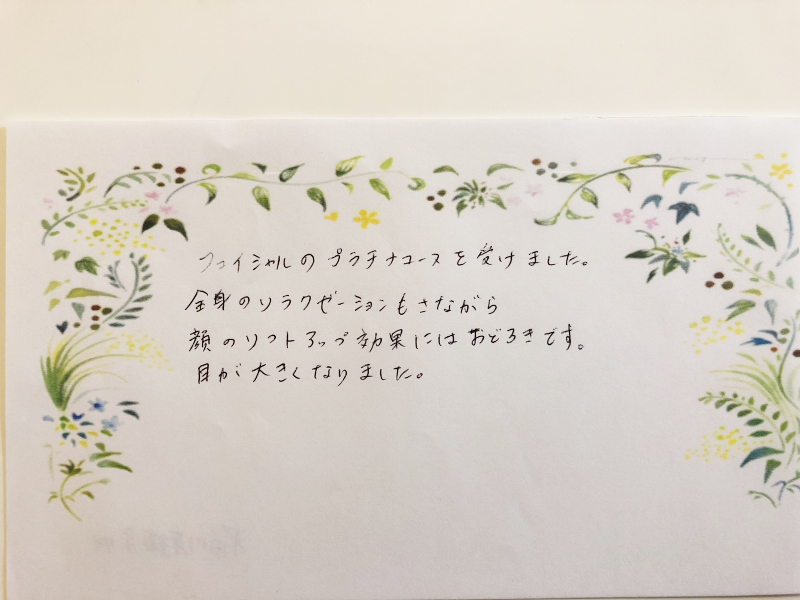 フェイシャルのプラチナコースを受けました。
全身のリラクゼーションもさながら
顔のリフトアップ効果にはおどろきです。
目が大きくなりました。